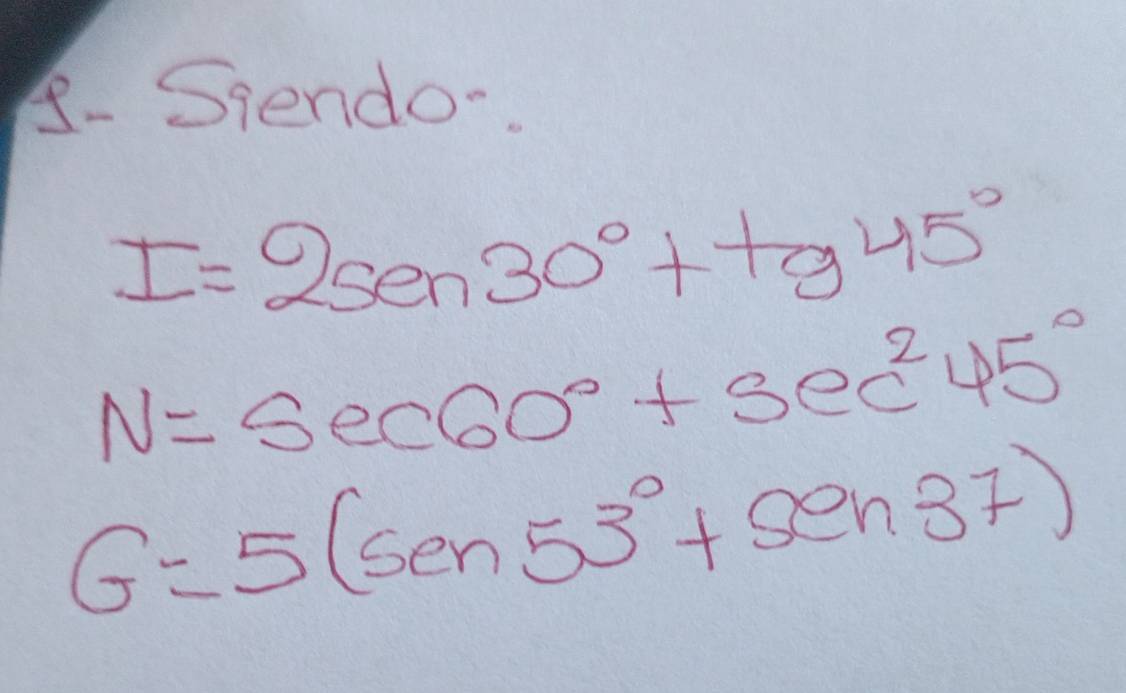 1- Siendo:
I = 2sen30° + tg45°
N = Sec60° + sec²45°
G = 5(sen53° + sen37)